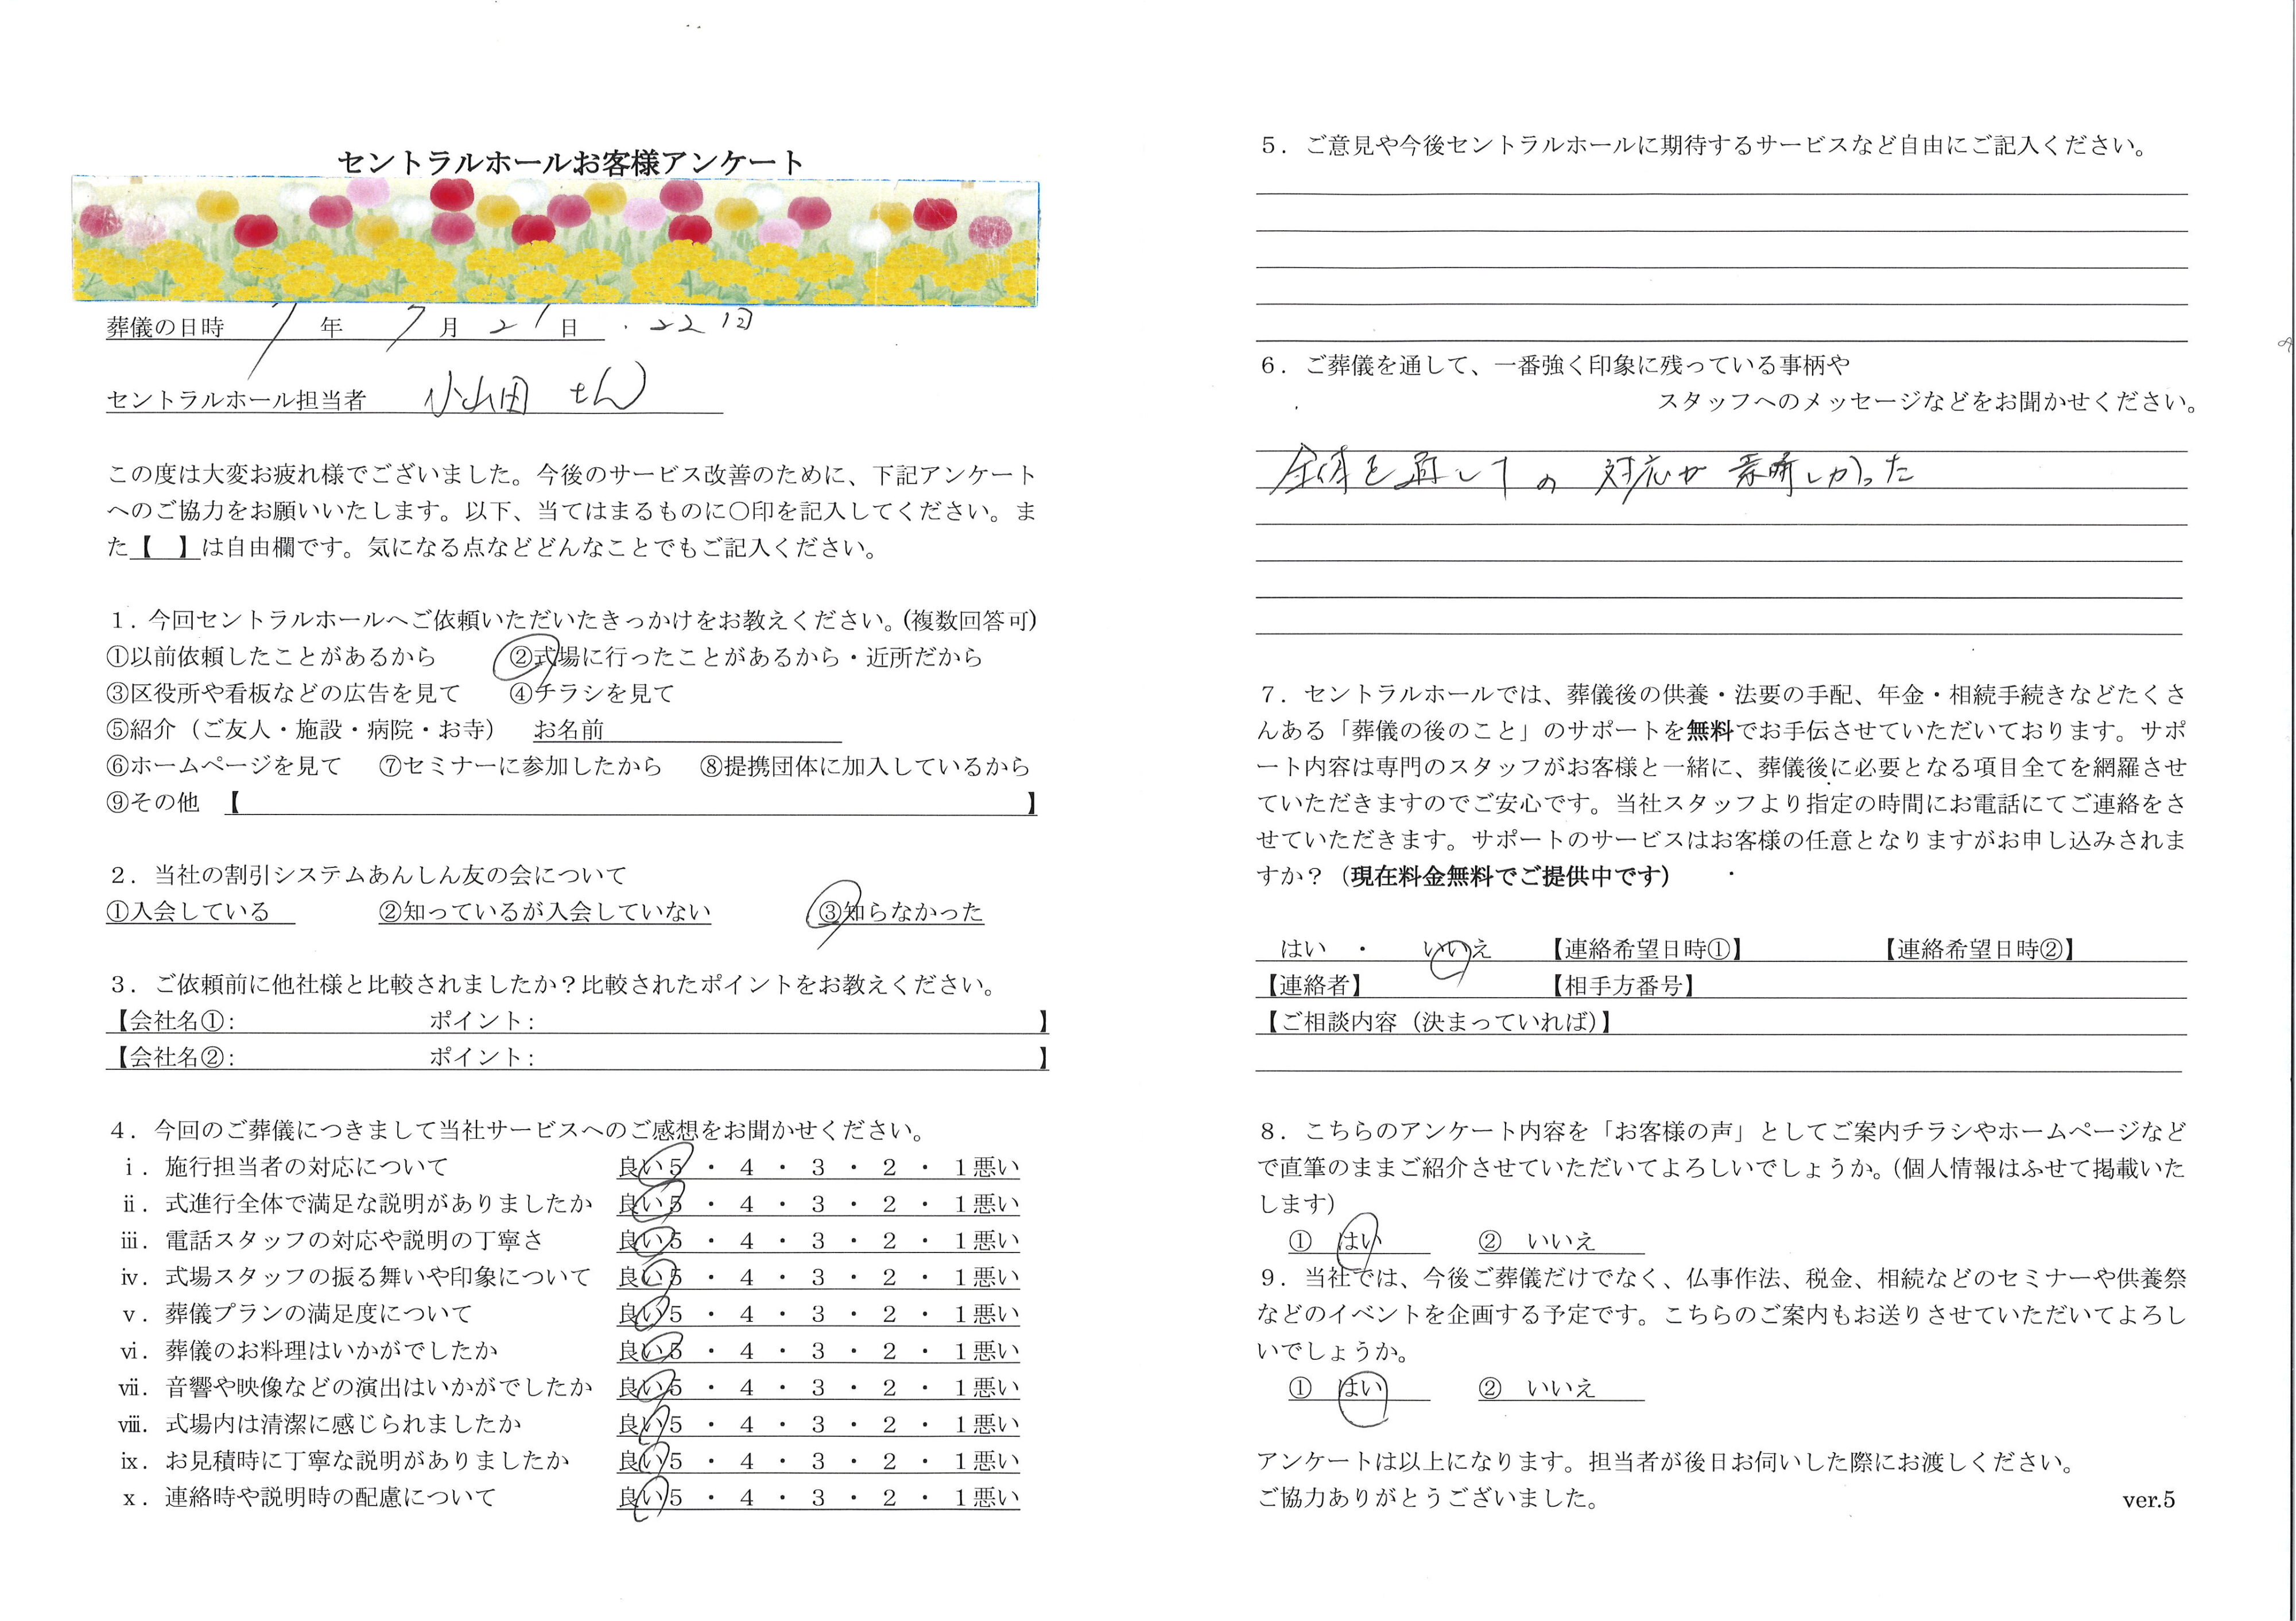 セントラルホールお客様アンケート
葬儀の日時 7年 7月 21日 . 22日
セントラルホール担当者 小山田 さん
この度は大変お疲れ様でございました。今後のサービス改善のために、下記アンケート
へのご協力をお願いいたします。以下、当てはまるものに〇印を記入してください。ま
た【　】は自由欄です。気になる点などどんなことでもご記入ください。
1．今回セントラルホールへご依頼いただいたきっかけをお教えください。(複数回答可)
①以前依頼したことがあるから　②式場に行ったことがあるから・近所だから
③区役所や看板などの広告を見て　④チラシを見て
⑤紹介（ご友人・施設・病院・お寺）　お名前
⑥ホームページを見て　⑦セミナーに参加したから　⑧提携団体に加入しているから
⑨その他　【　】
2．当社の割引システムあんしん友の会について
①入会している　②知っているが入会していない　③知らなかった
3．ご依頼前に他社様と比較されましたか？比較されたポイントをお教えください。
【会社名①：　ポイント：　】
【会社名②：　ポイント：　】
4．今回のご葬儀につきまして当社サービスへのご感想をお聞かせください。
ⅰ．施行担当者の対応について　良い 5 ・ 4 ・ 3 ・ 2 ・ 1 悪い
ⅱ．式進行全体で満足な説明がありましたか　良い 5 ・ 4 ・ 3 ・ 2 ・ 1 悪い
ⅲ．電話スタッフの対応や説明の丁寧さ　良い 5 ・ 4 ・ 3 ・ 2 ・ 1 悪い
ⅳ．式場スタッフの振る舞いや印象について　良い 5 ・ 4 ・ 3 ・ 2 ・ 1 悪い
ⅴ．葬儀プランの満足度について　良い 5 ・ 4 ・ 3 ・ 2 ・ 1 悪い
ⅵ．葬儀のお料理はいかがでしたか　良い 5 ・ 4 ・ 3 ・ 2 ・ 1 悪い
ⅶ．音響や映像などの演出はいかがでしたか　良い 5 ・ 4 ・ 3 ・ 2 ・ 1 悪い
ⅷ．式場内は清潔に感じられましたか　良い 5 ・ 4 ・ 3 ・ 2 ・ 1 悪い
ⅸ．お見積時に丁寧な説明がありましたか　良い 5 ・ 4 ・ 3 ・ 2 ・ 1 悪い
ⅹ．連絡時や説明時の配慮について　良い 5 ・ 4 ・ 3 ・ 2 ・ 1 悪い
5．ご意見や今後セントラルホールに期待するサービスなど自由にご記入ください。
6．ご葬儀を通して、一番強く印象に残っている事柄や
スタッフへのメッセージなどをお聞かせください。
全体を通しての 対応が 素晴しかった
7．セントラルホールでは、葬儀後の供養・法要の手配、年金・相続手続きなどたくさ
んある「葬儀の後のこと」のサポートを無料でお手伝させていただいております。サポ
ート内容は専門のスタッフがお客様と一緒に、葬儀後に必要となる項目全てを網羅させ
ていただきますのでご安心です。当社スタッフより指定の時間にお電話にてご連絡をさ
せていただきます。サポートのサービスはお客様の任意となりますがお申し込みされま
すか？（現在料金無料でご提供中です）
はい　・　いいえ　【連絡希望日時①】　【連絡希望日時②】
【連絡者】　【相手方番号】
【ご相談内容（決まっていれば）】
8．こちらのアンケート内容を「お客様の声」としてご案内チラシやホームページなど
で直筆のままご紹介させていただいてよろしいでしょうか。（個人情報はふせて掲載いた
します）
①　はい　②　いいえ
9．当社では、今後ご葬儀だけでなく、仏事作法、税金、相続などのセミナーや供養祭
などのイベントを企画する予定です。こちらのご案内もお送りさせていただいてよろし
いでしょうか。
①　はい　②　いいえ
アンケートは以上になります。担当者が後日お伺いした際にお渡しください。
ご協力ありがとうございました。　ver.5